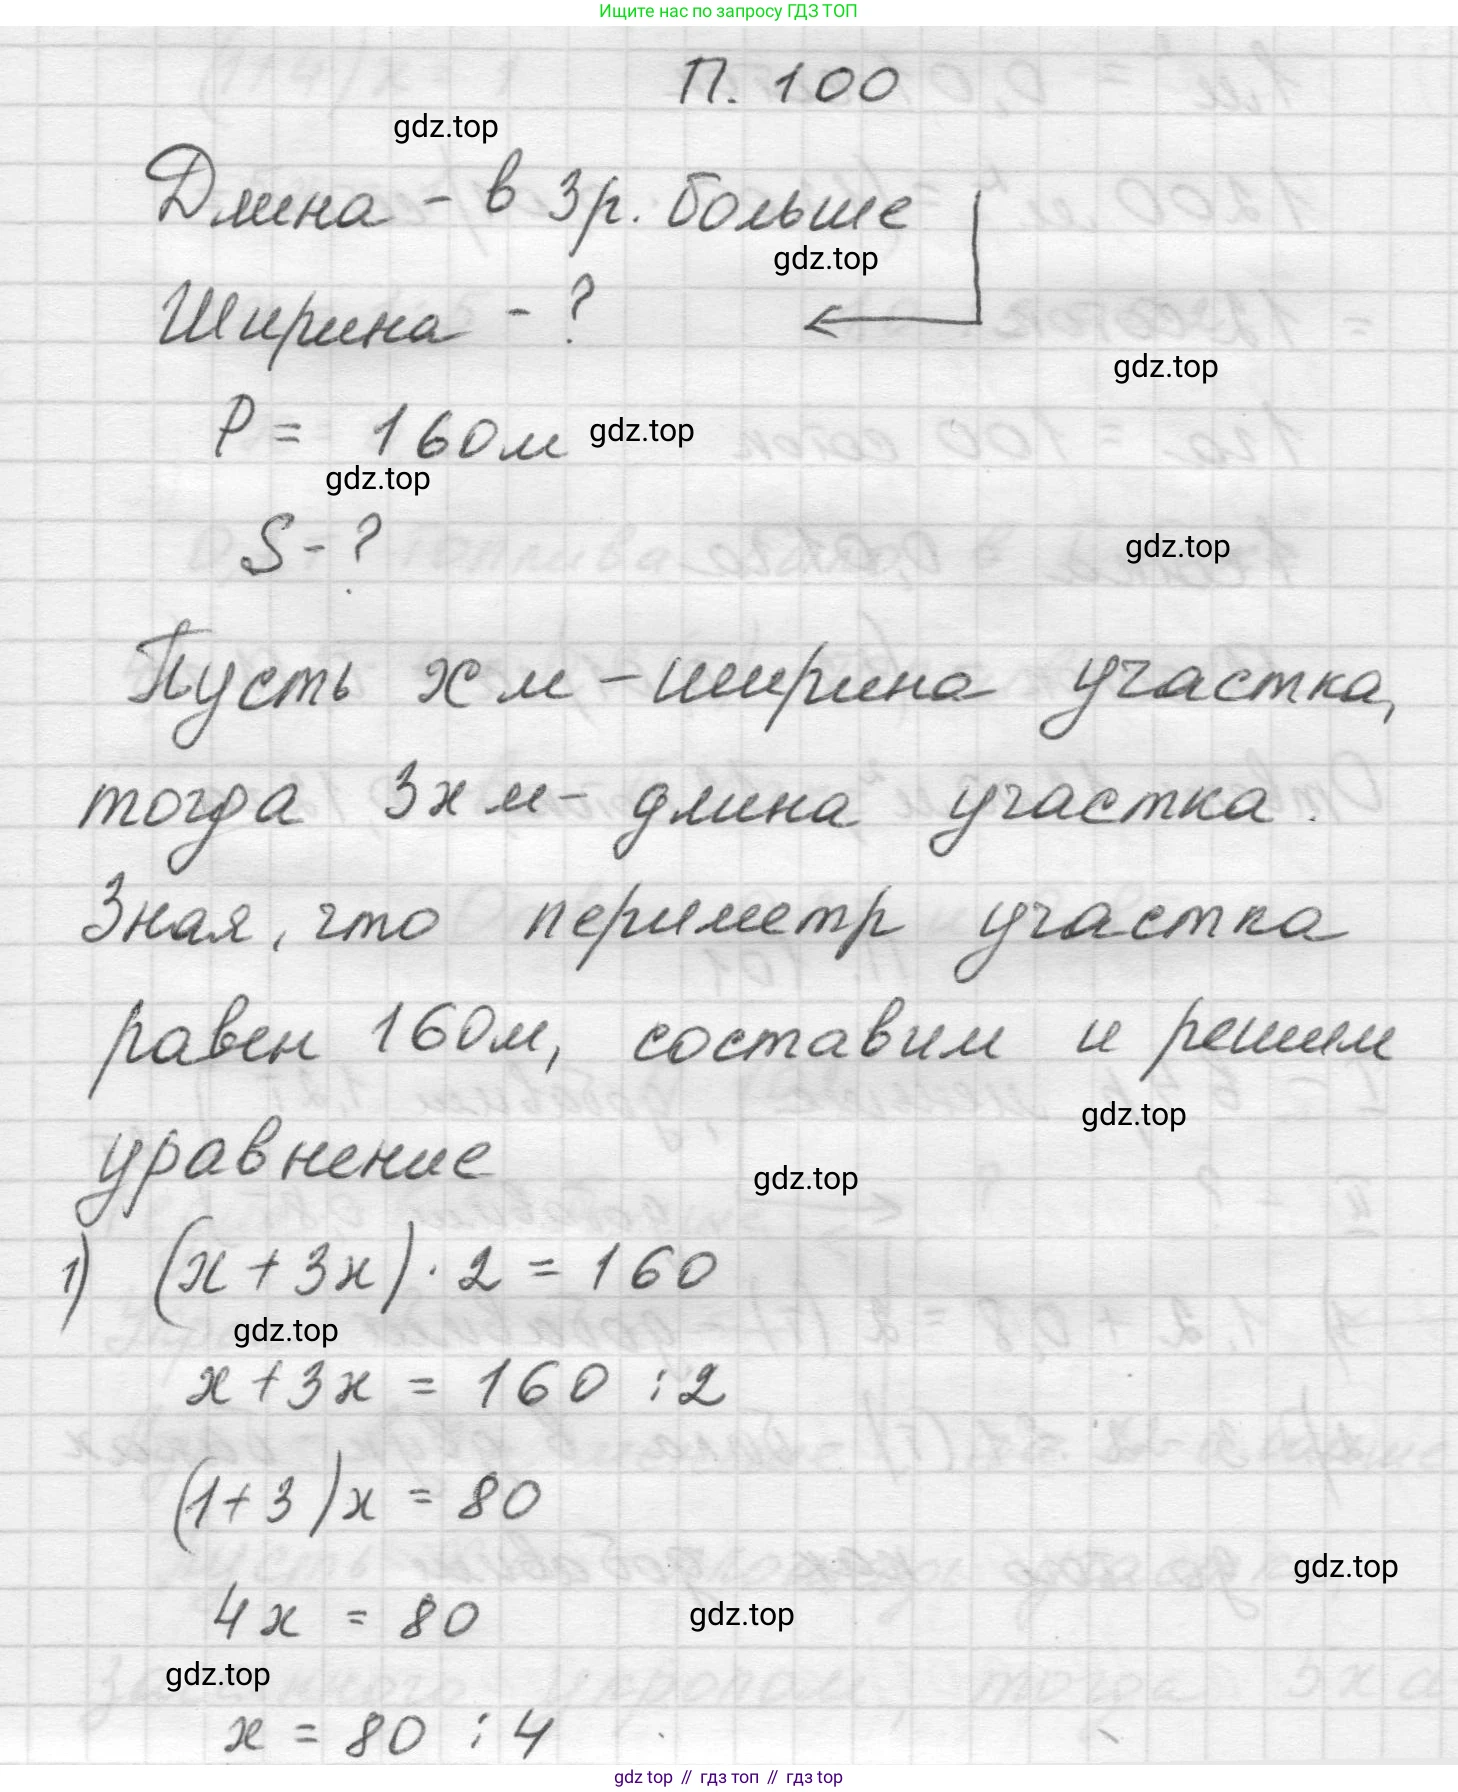 Ищите нас по запросу ГДЗ ТОП
П. 100
gdz.top
Длина - в 3 р. больше
gdz.top
Ширина - ?
gdz.top
P = 160 м gdz.top
gdz.top
S - ?
gdz.top
Пусть x м - ширина участка,
тогда 3x м - длина участка.
Зная, что периметр участка
равен 160 м, составим и решим
gdz.top
уравнение
gdz.top
1) (x + 3x) · 2 = 160
gdz.top
x + 3x = 160 : 2
(1 + 3)x = 80
gdz.top
4x = 80 gdz.top
gdz.top
x = 80 : 4
gdz top // гдз топ // гдз top